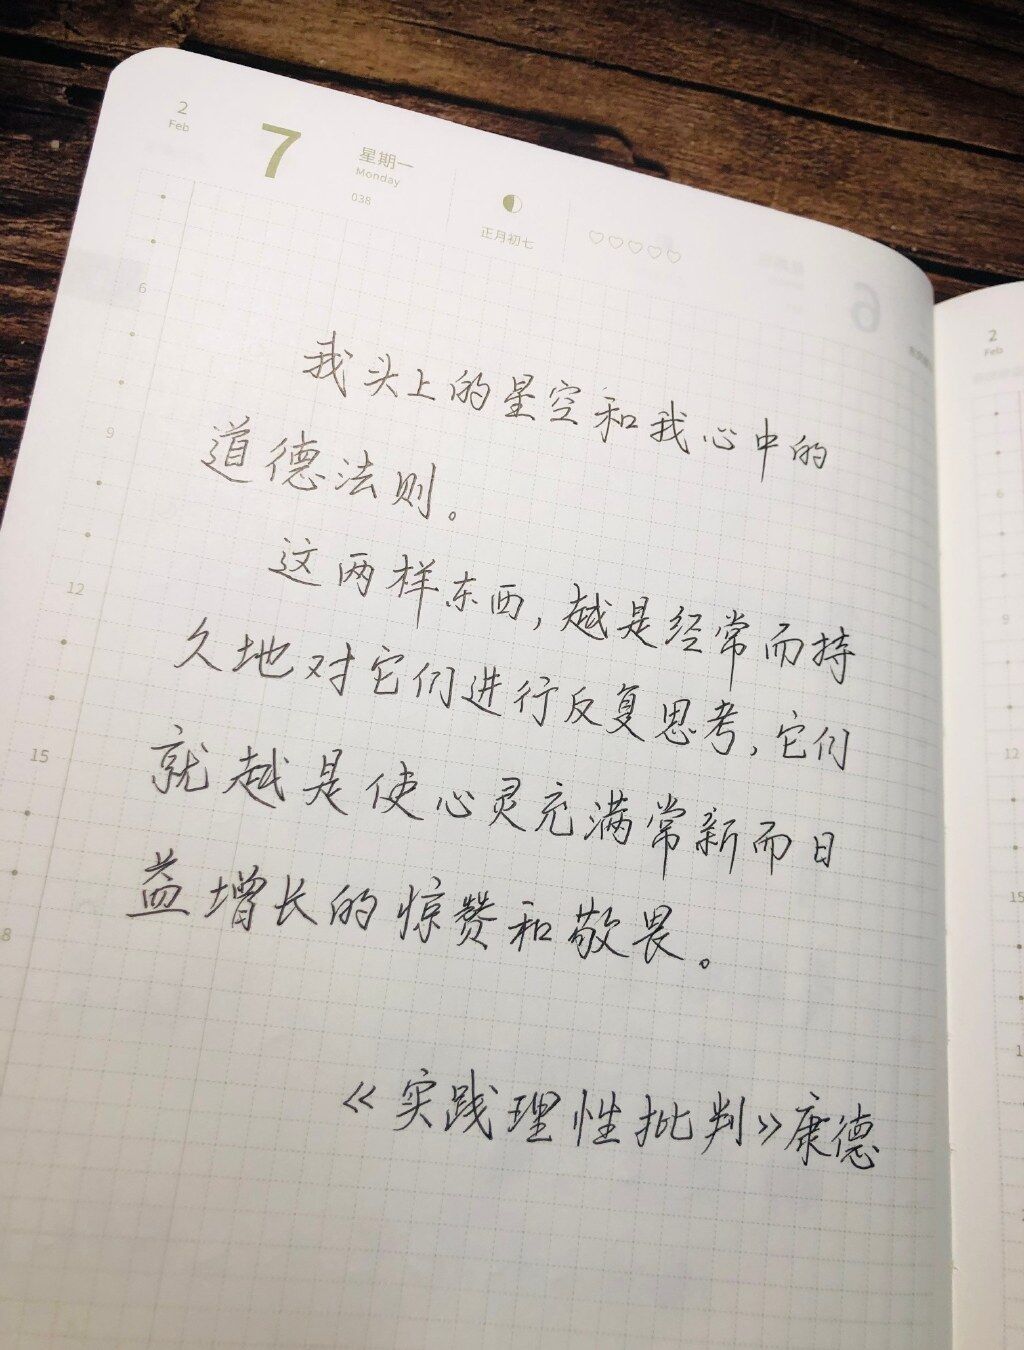 2
Feb
7
星期一
Monday
038
正月初七
6
我头上的星空和我心中的
道德法则。
这两样东西,越是经常而持
久地对它们进行反复思考,它们
就越是使心灵充满常新而日
益增长的惊赞和敬畏。
《实践理性批判》康德
6
9
12
15
8
2
Feb
6
9
12
15